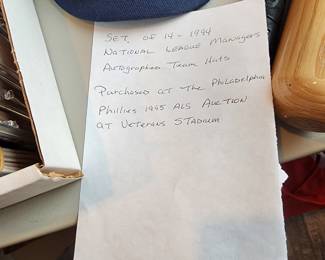 SET OF 14 - 1994
NATIONAL LEAGUE MANAGERS
AUTOGRAPHED TEAM HATS
PURCHASED AT THE PHILADELPHIA
PHILLIES 1995 ALS AUCTION
AT VETERANS STADIUM